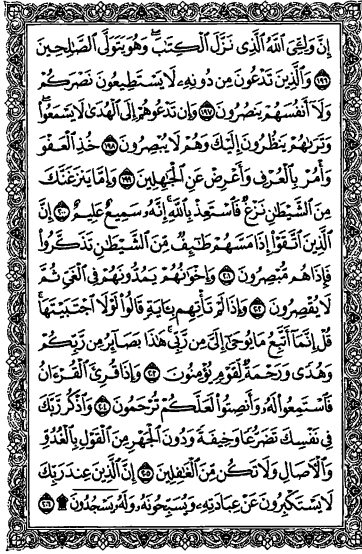 إِنَّ وَلِـِّۧيَ ٱللَّهُ ٱلَّذِى نَزَّلَ ٱلْكِتَٰبَ ۖ وَهُوَ يَتَوَلَّى ٱلصَّٰلِحِينَ
﴿١٩٦﴾ وَٱلَّذِينَ تَدْعُونَ مِن دُونِهِۦ لَا يَسْتَطِيعُونَ نَصْرَكُمْ
وَلَآ أَنفُسَهُمْ يَنصُرُونَ ﴿١٩٧﴾ وَإِن تَدْعُوهُمْ إِلَى ٱلْهُدَىٰ لَا يَسْمَعُوا۟ ۖ
وَتَرَىٰهُمْ يَنظُرُونَ إِلَيْكَ وَهُمْ لَا يُبْصِرُونَ ﴿١٩٨﴾ خُذِ ٱلْعَفْوَ
وَأْمُرْ بِٱلْعُرْفِ وَأَعْرِضْ عَنِ ٱلْجَٰهِلِينَ ﴿١٩٩﴾ وَإِمَّا يَنزَغَنَّكَ
مِنَ ٱلشَّيْطَٰنِ نَزْغٌ فَٱسْتَعِذْ بِٱللَّهِ ۚ إِنَّهُۥ سَمِيعٌ عَلِيمٌ ﴿٢٠٠﴾ إِنَّ
ٱلَّذِينَ ٱتَّقَوْا۟ إِذَا مَسَّهُمْ طَٰٓئِفٌ مِّنَ ٱلشَّيْطَٰنِ تَذَكَّرُوا۟
فَإِذَا هُم مُّبْصِرُونَ ﴿٢٠١﴾ وَإِخْوَٰنُهُمْ يَمُدُّونَهُمْ فِى ٱلْغَىِّ ثُمَّ
لَا يُقْصِرُونَ ﴿٢٠٢﴾ وَإِذَا لَمْ تَأْتِهِم بِـَٔايَةٍ قَالُوا۟ لَوْلَا ٱجْتَبَيْتَهَا ۚ
قُلْ إِنَّمَآ أَتَّبِعُ مَا يُوحَىٰٓ إِلَىَّ مِن رَّبِّى ۚ هَٰذَا بَصَآئِرُ مِن رَّبِّكُمْ
وَهُدًى وَرَحْمَةٌ لِّقَوْمٍ يُؤْمِنُونَ ﴿٢٠٣﴾ وَإِذَا قُرِئَ ٱلْقُرْءَانُ
فَٱسْتَمِعُوا۟ لَهُۥ وَأَنصِتُوا۟ لَعَلَّكُمْ تُرْحَمُونَ ﴿٢٠٤﴾ وَٱذْكُر رَّبَّكَ
فِى نَفْسِكَ تَضَرُّعًا وَخِيفَةً وَدُونَ ٱلْجَهْرِ مِنَ ٱلْقَوْلِ بِٱلْغُدُوِّ
وَٱلْـَٔاصَالِ وَلَا تَكُن مِّنَ ٱلْغَٰفِلِينَ ﴿٢٠٥﴾ إِنَّ ٱلَّذِينَ عِندَ رَبِّكَ
لَا يَسْتَكْبِرُونَ عَنْ عِبَادَتِهِۦ وَيُسَبِّحُونَهُۥ وَلَهُۥ يَسْجُدُونَ ۩ ﴿٢٠٦﴾